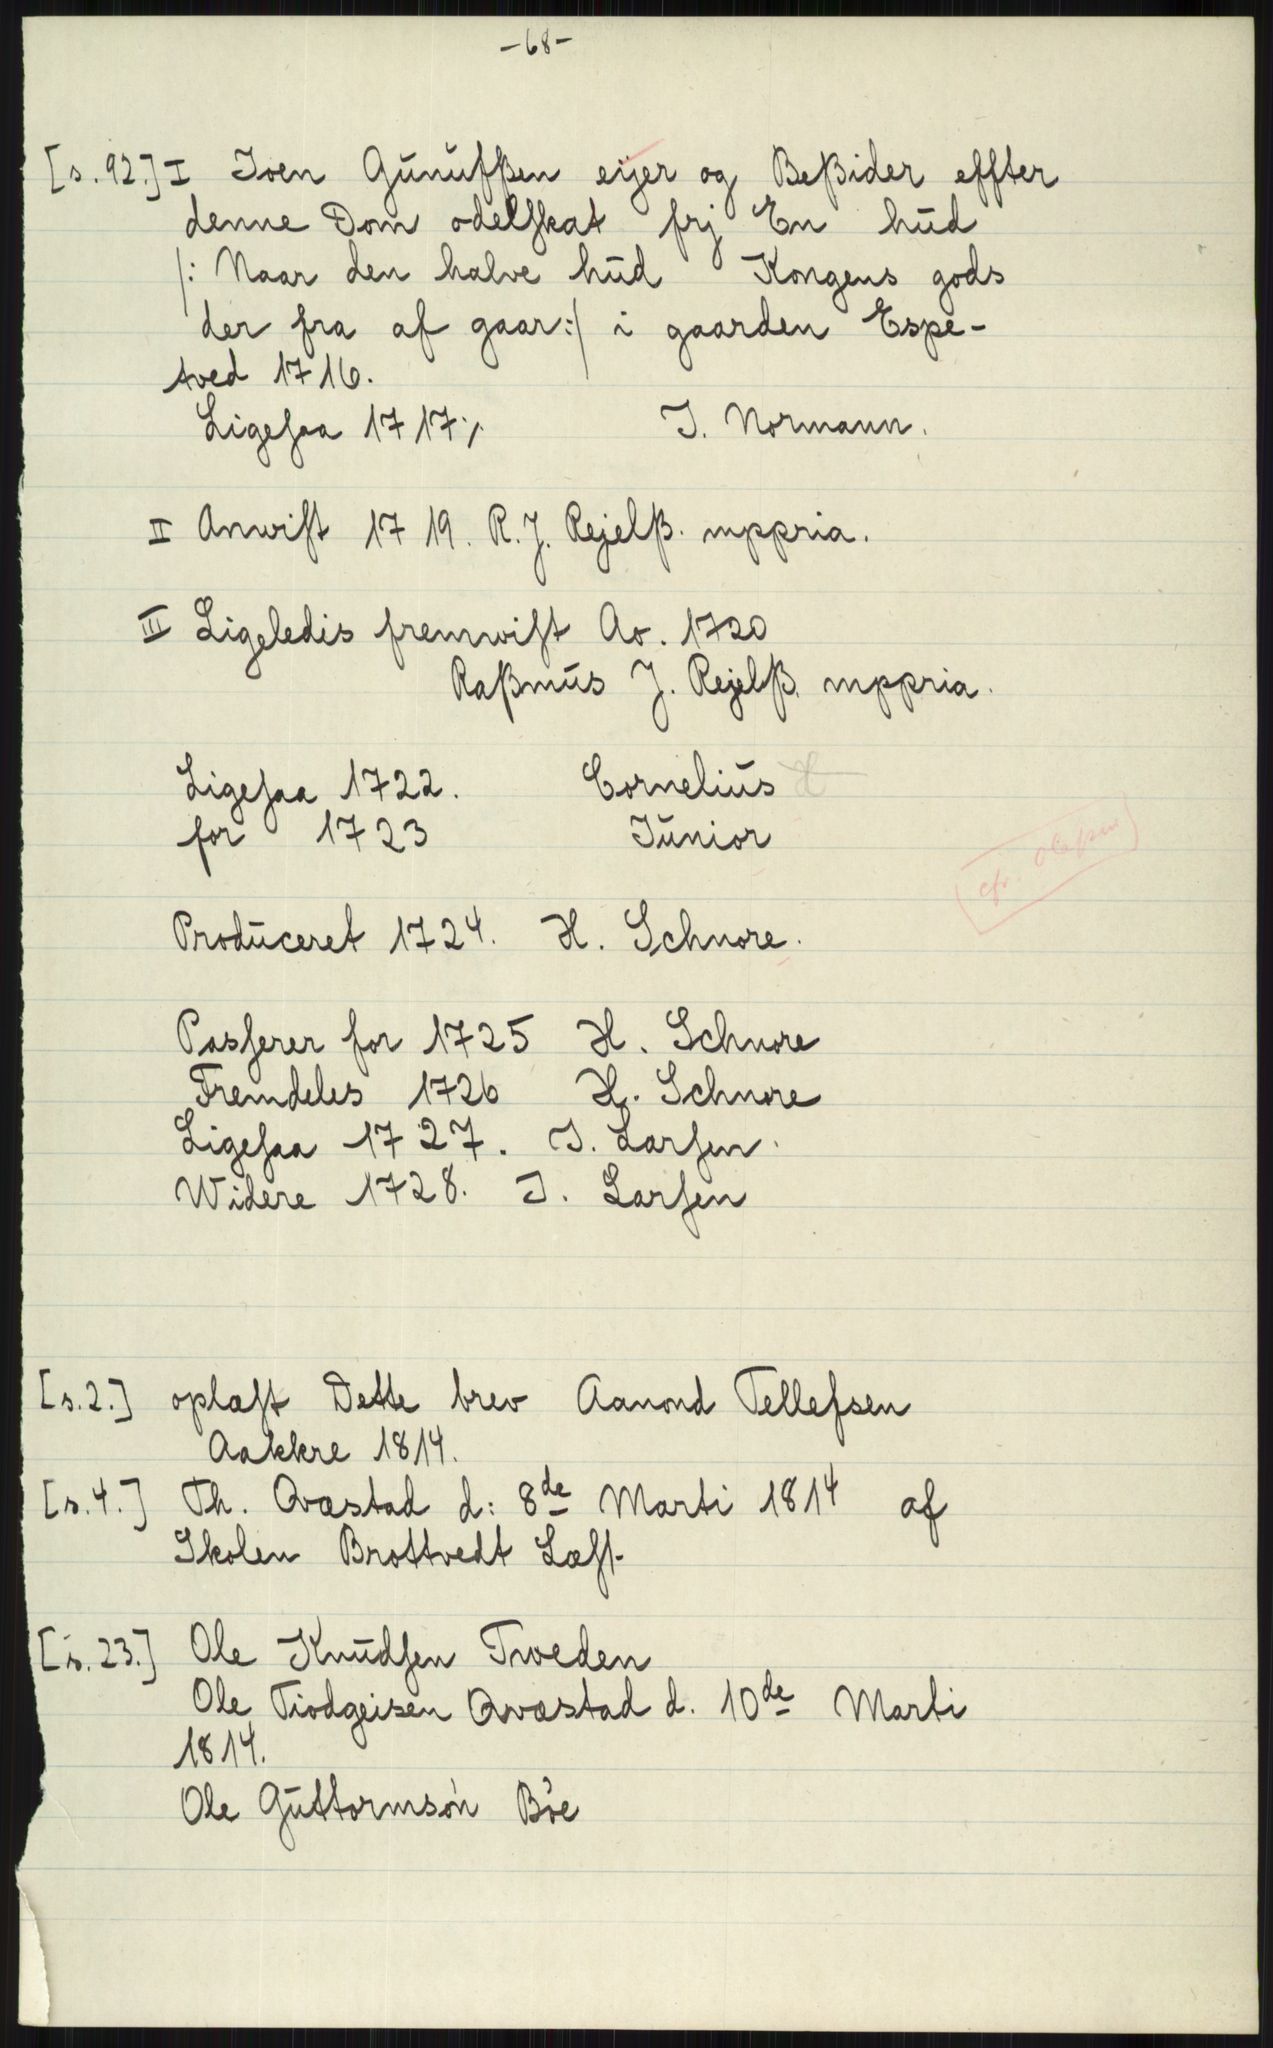 -68-
[s. 92.] I Joen Gunufßen eijer og Beßider effter
denne Dom odelskat frj En hud
/: Naar den halve hud Kongens gods
der fra af gaar:/ i gaarden Espe-
tved 1716.
Ligesaa 1717 ./. J. Normann.
II Anwist 1719. R. J. Rejelß. mppria.
III Ligeledis fremwist Ao. 1720
Raßmus J. Rejelß. mppria.
Ligesaa 1722. Cornelius
for 1723 Junior
cfr. Oleßen
Produceret 1724. H. Schnore.
Passerer for 1725 H. Schnore
Fremdeles 1726 H. Schnore
Ligesaa 1727. J. Larsen.
Widere 1728. J. Larsen
[s. 2.] oplæst Dette brev Aanond Tellefsen
Aakkre 1814.
[s. 4.] Th. Qvæstad d: 8de Marti 1814 af
Skolen Brottvedt Læst.
[s. 23.] Ole Knudsen Tweden
Ole Tiodgeisen Qvæstad d. 10de Marti
1814.
Ole Guttormsøn Bøe